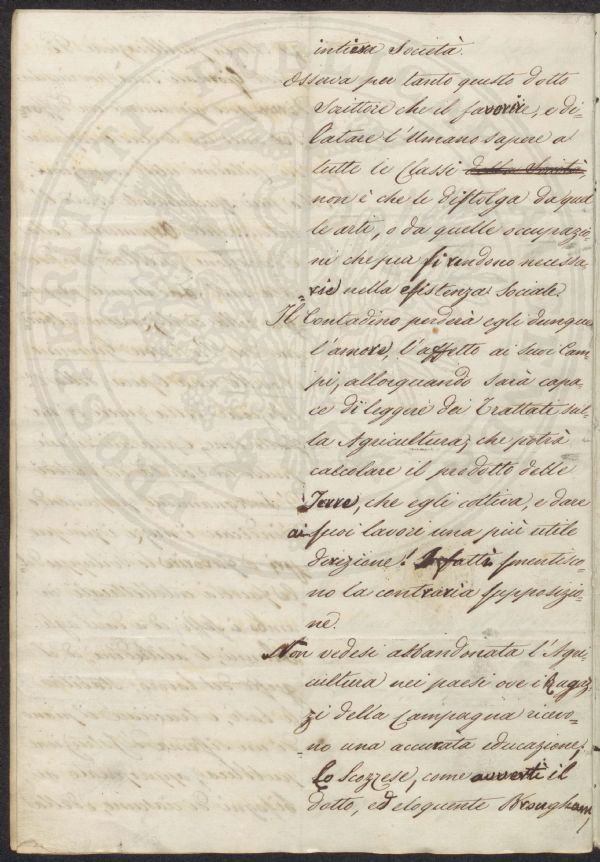 intiera Società.
Osserva per tanto questo dotto
Scrittore che il favorire, e di=
latare l'Umano sapere a
tutte le Classi della Società,
non è che le distolga da quel
le arti, o da quelle occupazio=
ni che più si rendono necessa
rie nella esistenza Sociale.
Il Contadino perderà egli dunque
l'amore, l'affetto ai suoi Cam
pi, allorquando sarà capa
ce di leggere dei Trattati sul=
la Agricultura; che potrà
calcolare il prodotto delle
Terre, che egli coltiva, e dare
ai suoi lavori una più utile
direzione! I fatti smentisco
no la contraria supposizio=
ne.
Non vedesi abbandonata l'Agri
cultura nei paesi ove i Ragaz=
zi della Campagna ricevo=
no una accurata educazione;
Lo Scozzese, come avvertì il
dotto, ed eloquente Brougham
PROSPERITATI PUBLICAE